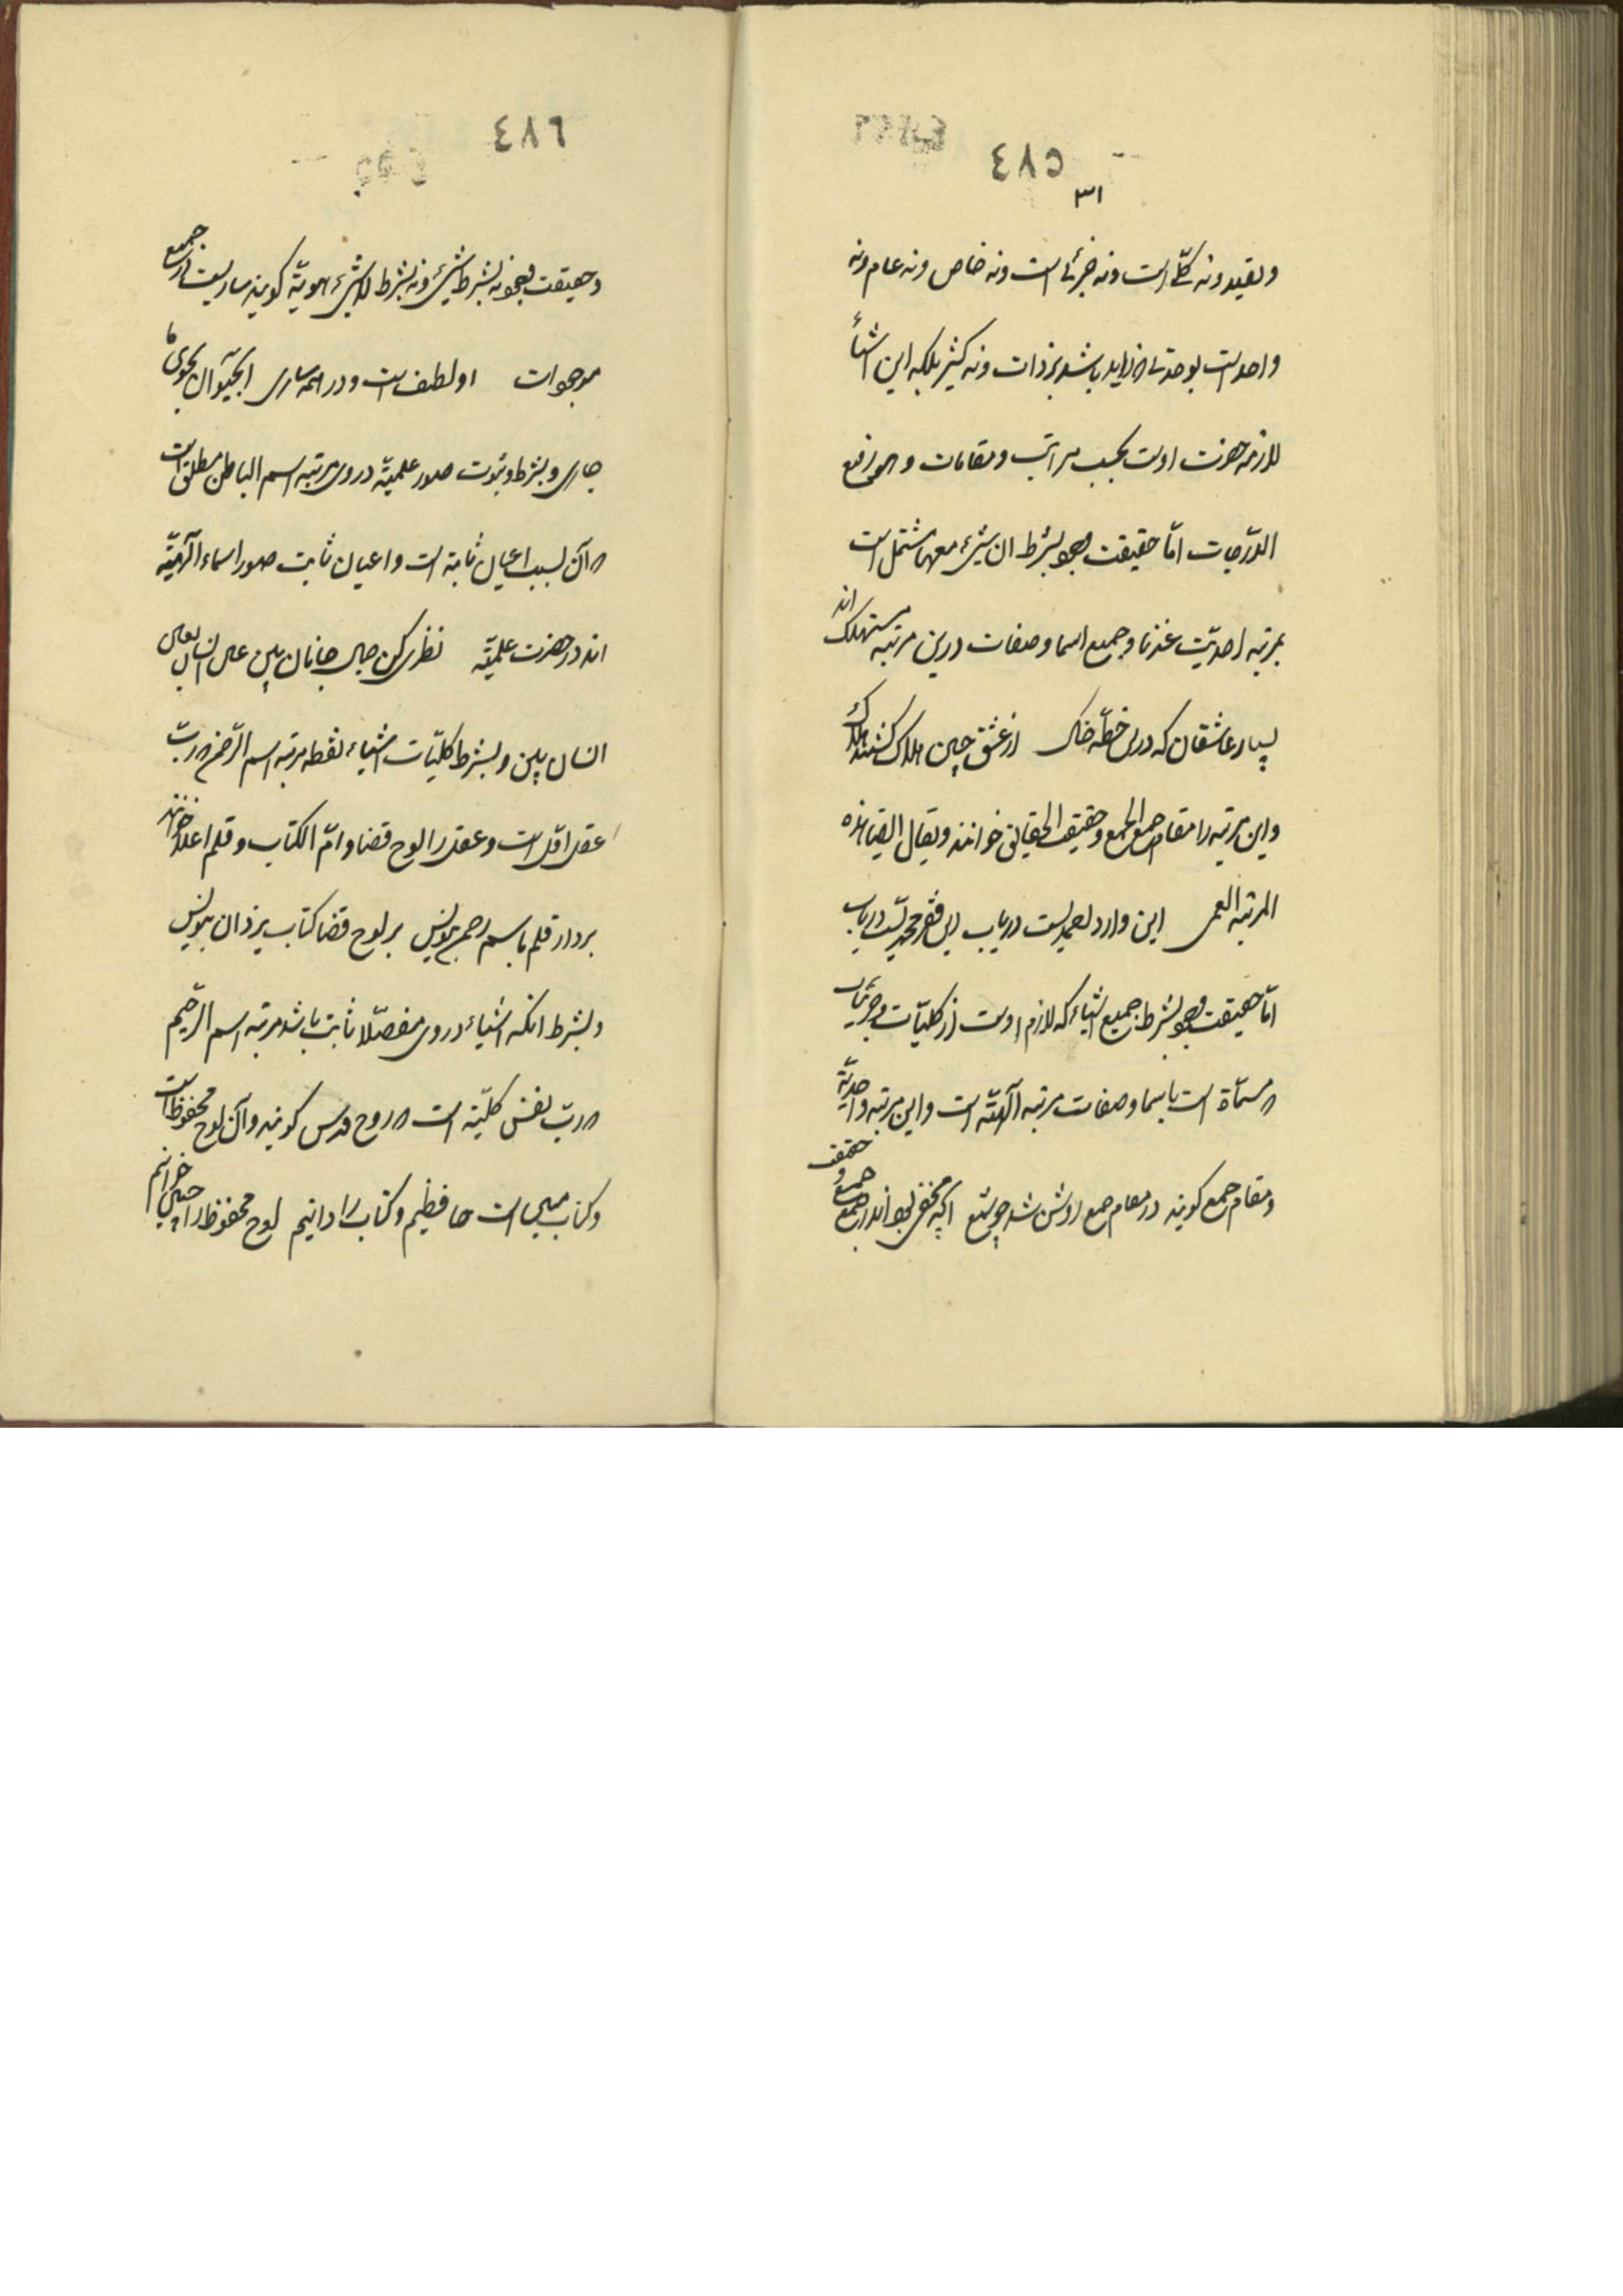 ٤٨٥
٣١
و مقید و نه کلّی است و نه جزئی است و نه خاص و نه عام و نه
واحد است بوحدتی که زاید باشد بر ذات و نه کثیر بلکه این اشیأ
لازمه حضرت اوست بحسب مراتب و مقامات و هو رفیع
الدّرجات امّا حقیقت وجود بشرط ان شیء معها مشتمل است
بمرتبه احدیّت عندنا و جمیع اسما و صفات درین مرتبه مستهلک اند
بسیار عاشقان که درین خطّه خاک از عشق چنین هلاک گشتند هلاک
و این مرتبه را مقام جمع الجمع و حقیقت الحقایق خوانند و یقال ایضا هذه
المرتبه العمی این وارد احمدیست دریاب این فقر محمدیست دریاب
امّا حقیقت وجود بشرط جمیع اشیاء که لازم اوست از کلیّات و جزئیات
مسمّاة است باسما و صفات مرتبه آلهیّه است و این مرتبه واحدیّة
و مقام جمع گویند در مقام جمع روشن شد چو شمع آنچه مخفی بود اندر جمع جمع
و حقیقت
٤٨٦
و حقیقت وجود نه بشرط شیء و نه بشرط لا شیء هویّة گویند ساریست در جمیع
موجودات او لطف است و در همه ساری آبحیوان بجوی ما
جاری و بشرط ثبوت صور علمیّة در وی مرتبه اسم الباطن مطلق است
که آن بسبب اعیان ثابته است و اعیان ثابت صور اسماء آلهیّة
اند در حضرت علمیّة نظری کن جمال جانان بین
انسان بین و بشرط کلیّات اشیاء فقط مرتبه اسم الرّحمن که ربّ
عقل اوّل است و عقل را لوح قضا و امّ الکتاب و قلم اعلا خوانند
بردار قلم باسم رحمن بنویس بر لوح قضا کتاب یزدان بنویس
و بشرط انکه اشیاء در وی مفصّلا ثابت باشد مرتبه اسم الرّحیم
که ربّ نفس کلیّه است که روح قدس گویند و آن لوح محفوظ است
و کتاب مبین است حافظیم و کتاب را دانیم لوح محفوظ را چنین خوانیم